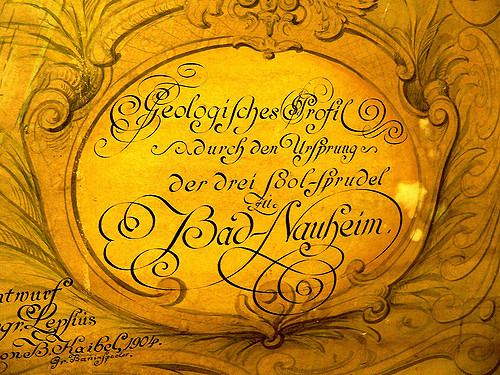 Geologisches Profil
durch den Ursprung
der drei Sool-sprudel
zu
Bad-Nauheim.
ntwurf
gr. Lepsius
on B. Kaibel, 1904.